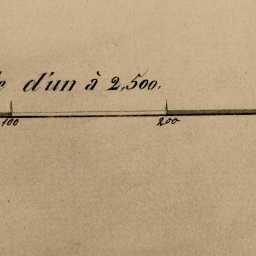 d'un à 2,500.
100 200